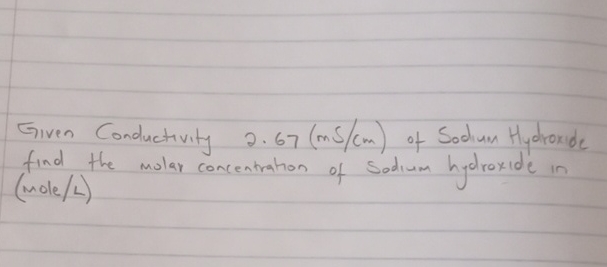 Given Conductivity 2.67 (mS/cm) of Sodium Hydroxide
find the molar concentration of Sodium hydroxide in
(mole/L)